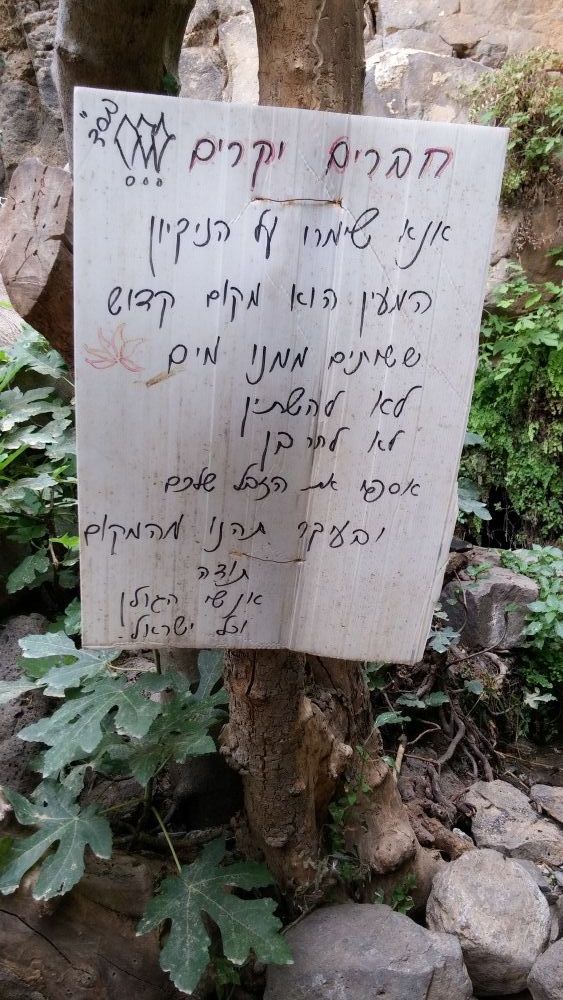 בס"ד
חברים יקרים
אנא שימרו על הניקיון
המעין הוא מקום קדוש
ששותים ממנו מים
לא להשתין
לא לחרבן
אספו את הזבל שלכם
ובעיקר תהנו מהמקום
תודה
אנשי הגולן
וכל ישראל